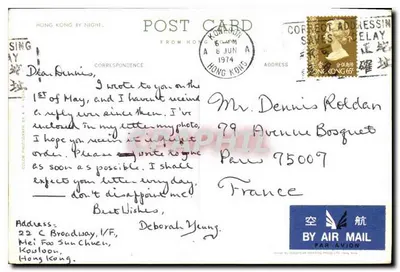 HONG KONG BY NIGHT.
POST CARD
FROM HONG KONG
CORRESPONDENCE
ADDRESS
KOWLOON
6 PM
A A
8 JUN
1974
HONG KONG
CORRECT ADDRESSING
SAVES DELAY
HONG KONG
Dear Dennis,
I wrote to you on the
1st of May, and I haven't receive
a reply ever since then. I've
enclosed in my letter my photo,
I hope you receive
order. Please write to me
as soon as possible. I shall
expect your letter everyday
— don't disappoint me!
Best Wishes,
Deborah Yeung.
Address:
22 C Broadway, 1/F,
Mei Foo Sun Chuen,
Kowloon,
Hong Kong.
Mr. Dennis Roldan
79 Avenue Bosquet
Paris 75007
France
空 航
BY AIR MAIL
PAR AVION